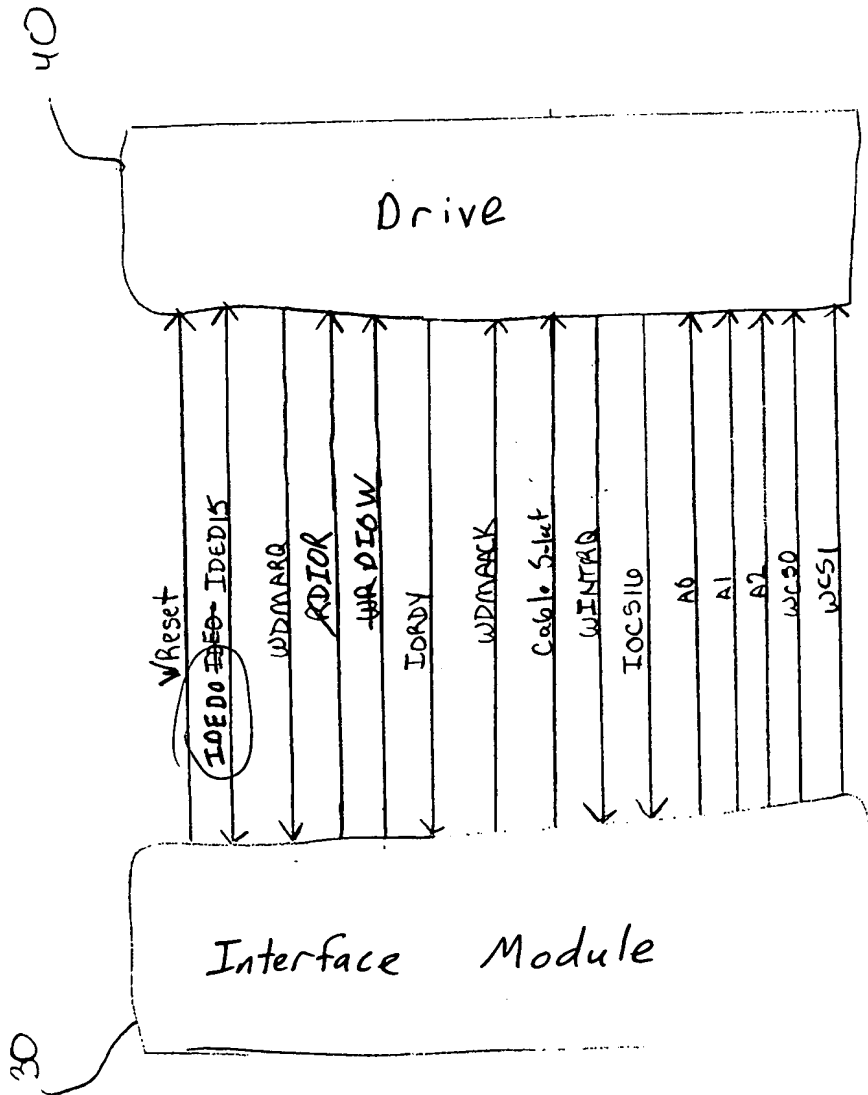 40
Drive
WReset
IDED0 IDED15
WDMARQ
RDIOR
DIOW
IORDY
WDMAACK
Cable
WINTRQ
IOCS16
A0
A1
A2
WCS0
WCS1
Interface Module
30